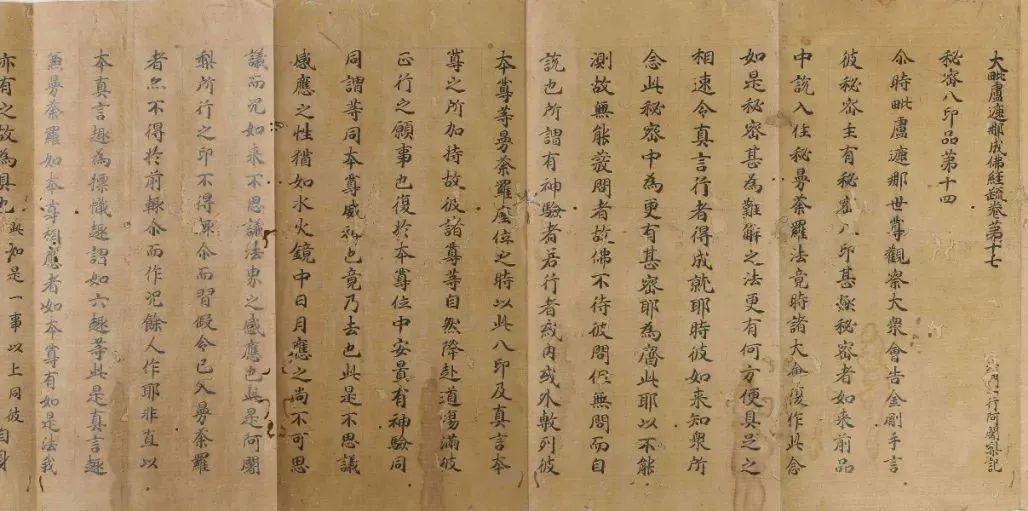 大毗盧遮那成佛經疏卷第十七
沙門一行阿闍梨記
秘密八印品第十四
尒時毗盧遮那世尊觀察大衆會告金剛手言
彼秘密主有秘密八印甚㴱秘密者如來前品
中說入住秘曼荼羅法竟時諸大會復作此念
如是秘密甚為難解之法更有何方便具足之
相速令真言行者得成就耶時彼如來知衆所
念此秘密中為更有甚密耶為齊此耶以不能
測故無能發問者故佛不待彼問但無問而自
說也所謂有神驗者若行者或內或外敷列彼
本尊等曼荼羅座位之時以此八印及真言本
尊之所加持故彼諸尊等自然降赴道場滿彼
正行之願事也復於本尊位中安置有神驗同
同謂等同本尊威神也竟乃去也此是不思議
感應之性猶如水火鏡中日月應之尚不可思
議而況如來不思議法界之感應也此是阿闍
梨所行之印不得輙尒而習假令已入曼荼羅
者亦不得於前輙尒而作況餘人作耶非直以
本真言趣為摽幟趣謂如六趣等此是真言趣
無曼荼羅如本尊相應者如本尊有如是法我
亦有之故為具也此如是一事以上同彼自身